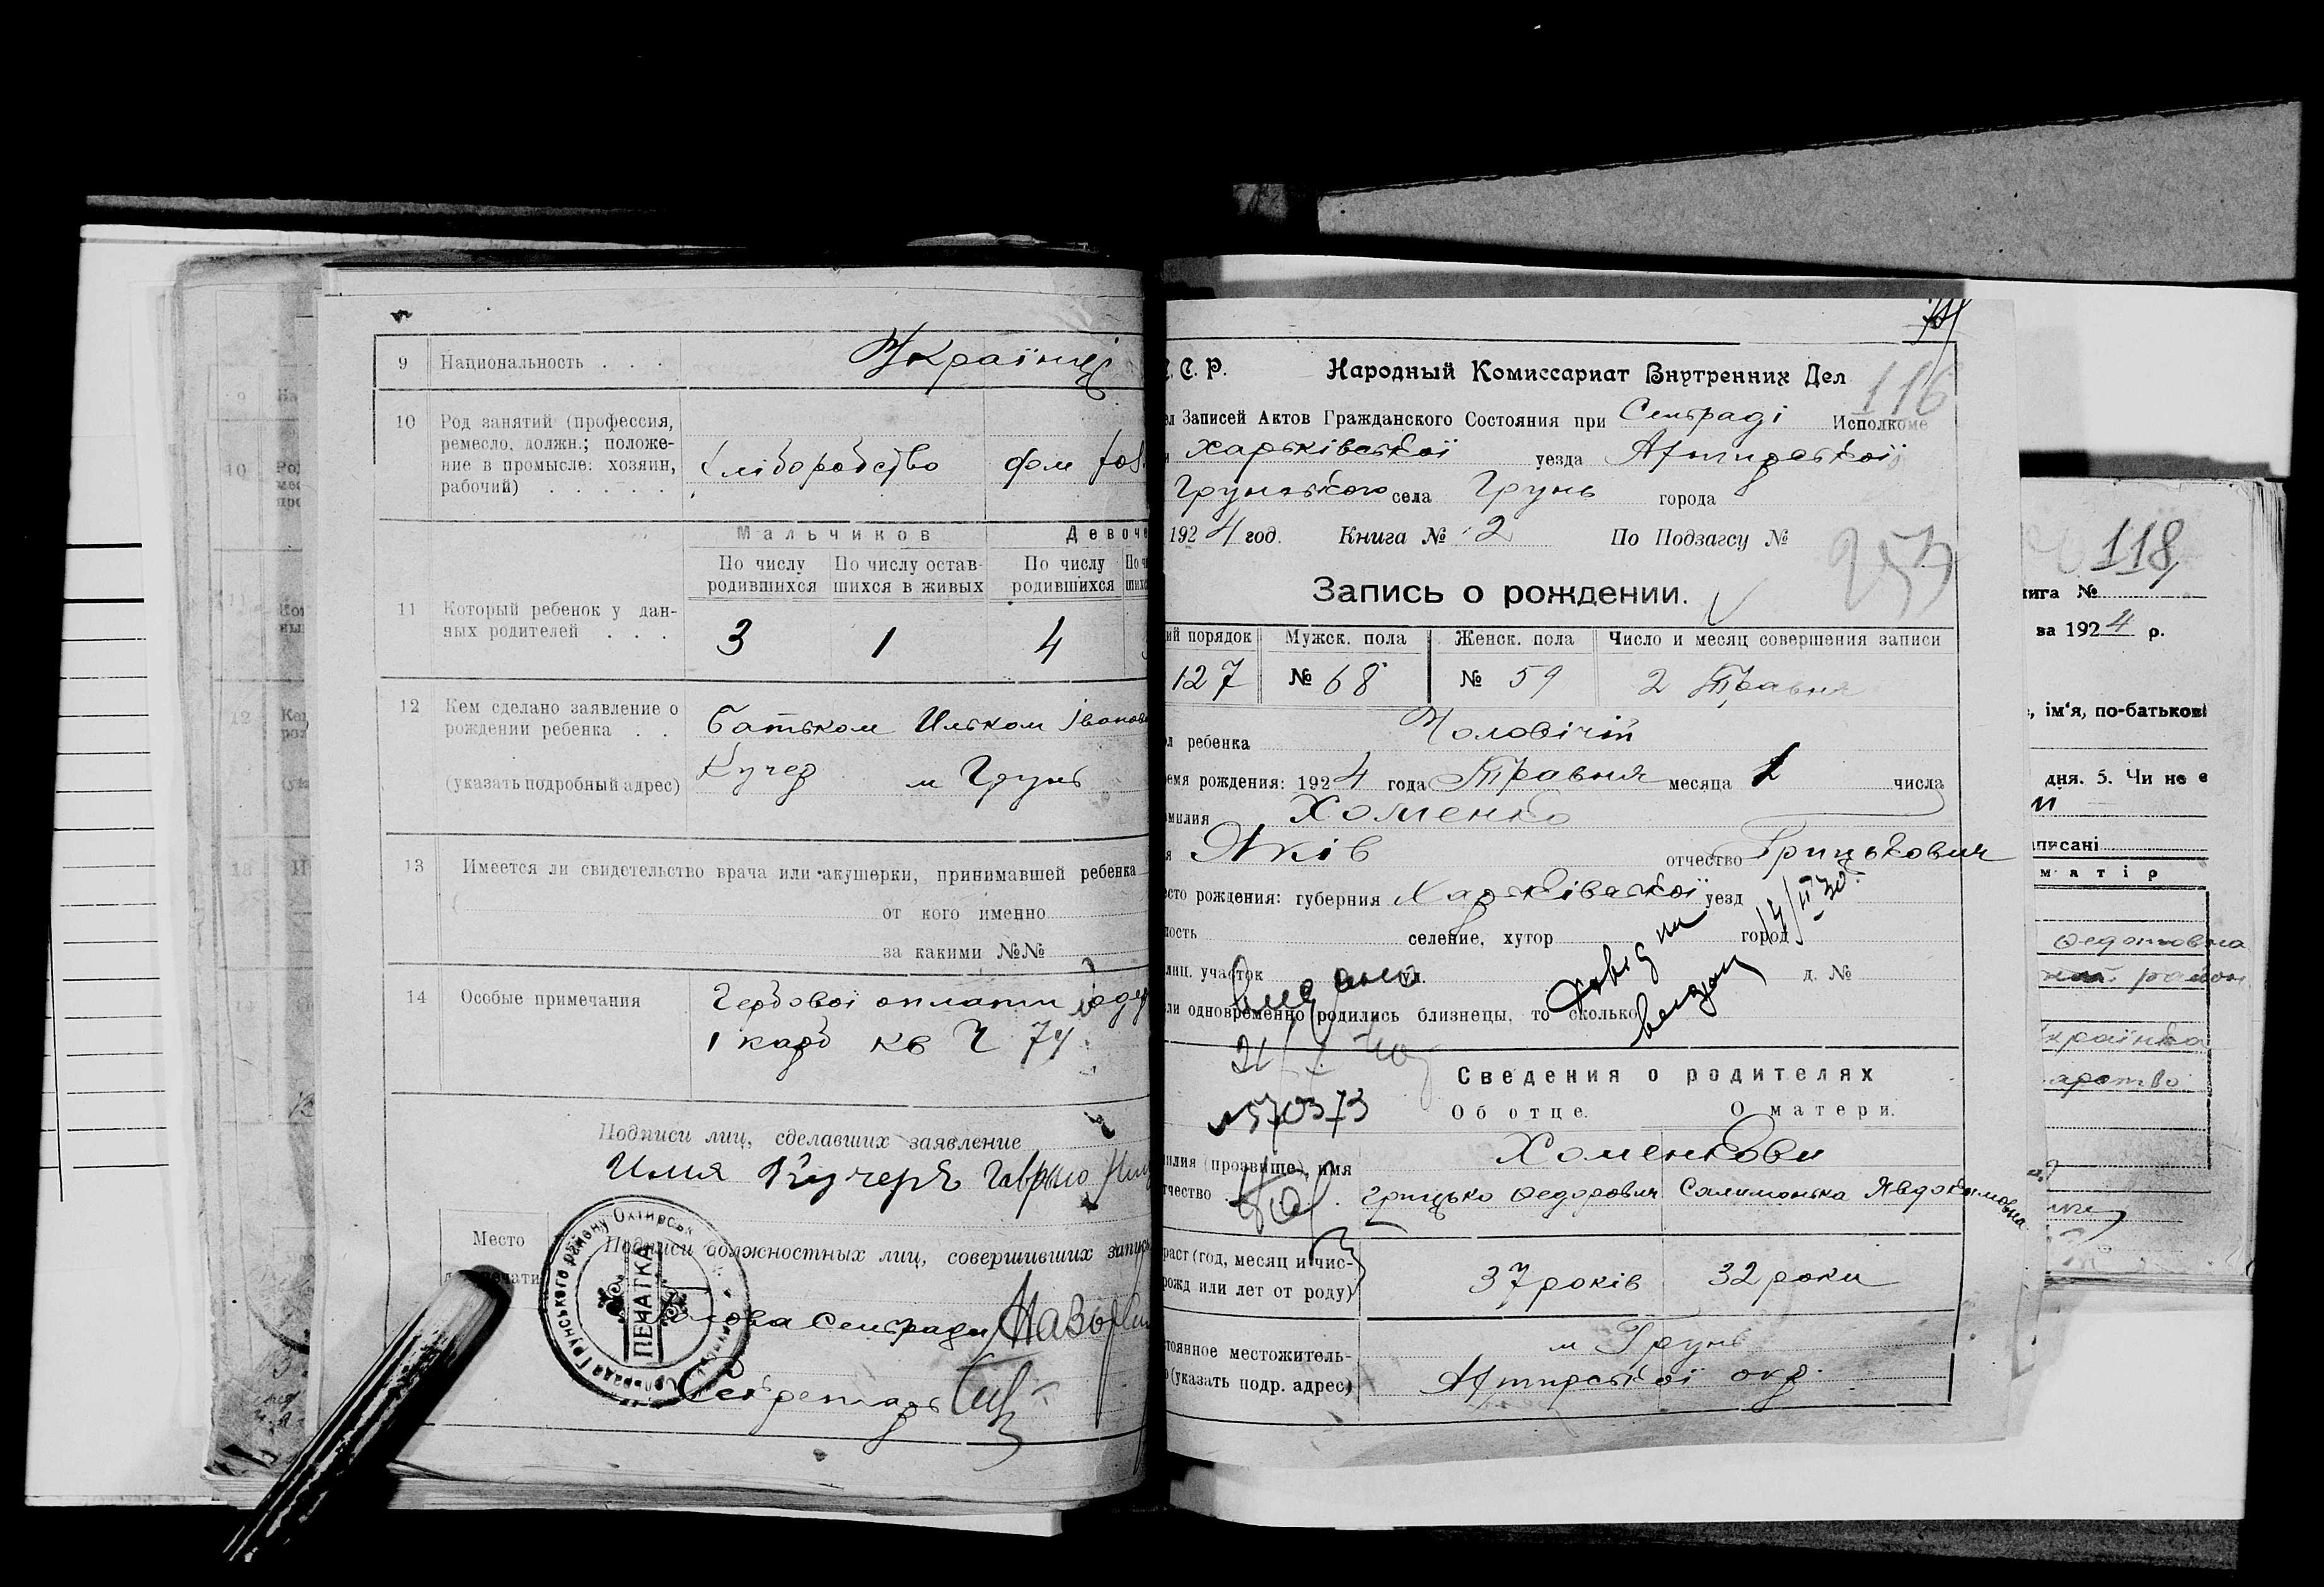 9 Национальность . . . Українці
10 Род занятий (профессия,
ремесло, должн.; положе-
ние в промысле: хозяин,
рабочий) . . . . .
хліборобство дом
Мальчиков Девоче
По числу родившихся По числу остав-шихся в живых По числу родившихся
11 Который ребенок у дан-
ных родителей . . .
3 1 4
12 Кем сделано заявление о
рождении ребенка . .
(указать подробный адрес)
батьком Ильком Іванов
Кучер м Грунь
13 Имеется ли свидетельство врача или акушерки, принимавшей ребенка
от кого именно
за какими №№
14 Особые примечания
Гербової оплати
1 карб кв Ч 74
Подписи лиц, сделавших заявление
Илия Кучеръ
Место
печати
Подписи должностных лиц, совершивших запись
ПЕЧАТКА
Грунського району Охтирськ
Голова Сельради
Секретарь
С. Р. Народный Комиссариат Внутренних Дел
116
Записей Актов Гражданского Состояния при Сельраді Исполкоме
Харьківської уезда Ахтирської
Грунського села Грунь города
1924 год. Книга № 2 По Подзагсу №
253
Запись о рождении.
ий порядок Мужск. пола Женск. пола Число и месяц совершения записи
127 № 68 № 59 2 Травня
ребенка Чоловічій
емя рождения: 1924 года Травня месяца 1 числа
милия Хоменко
Яків отчество Грицькович
сто рождения: губерния Харьківської уезд
ность селение, хутор город
лиц. участок д. №
ли одновременно родились близнецы, то сколько
570373
Сведения о родителях
Об отце. О матери.
илия (прозвище), имя
чество
Хоменкови
Грицько Федорович Салимонька Явдокимовна
раст (год, месяц и чис-
рожд или лет от роду)
37 років 32 роки
тоянное местожитель-
(указать подр. адрес)
м Грунь
Ахтирської окр.
118
ига №
за 1924 р.
ім'я, по-батькові
дня. 5. Чи не є
писані
матір
Федотовна
район
країнка